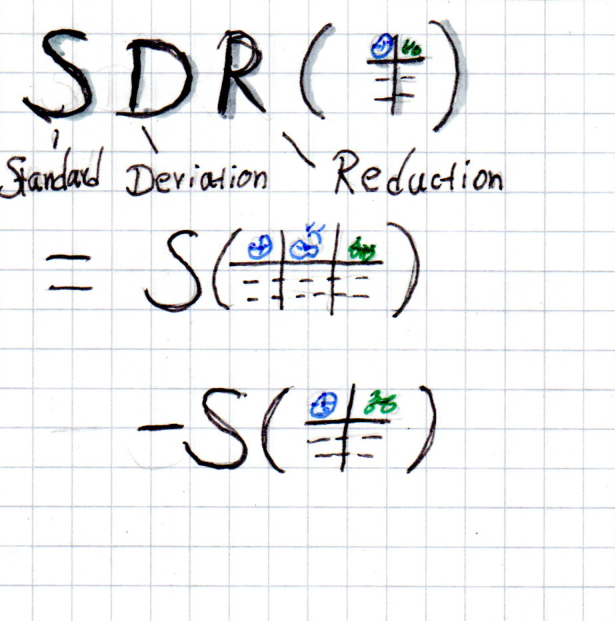 SDR ( )
Standard Deviation Reduction
= S( )
-S( )